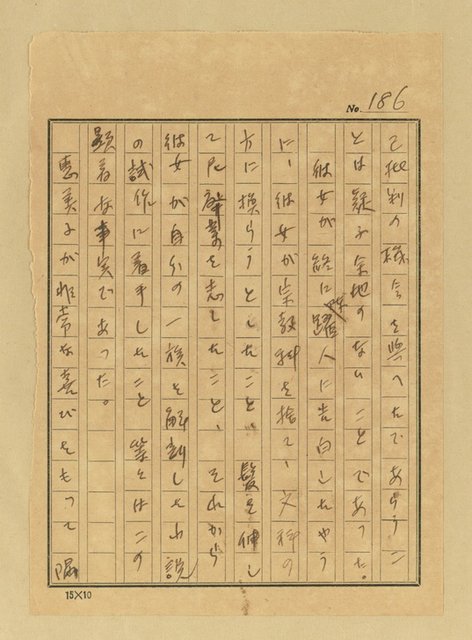 No. 186
と批判の機会を与へたであらうこ
とは疑ふ余地のないことであつた。
彼女が 終に 躍人に告白したやう
に、彼女が宗教科を捨て、文科の
方に換らうとしたこと、 髪を伸し
て 肇業を志したこと、 それから
彼女が自分の一族を解剖した小説
の試作に着手したこと 等々はこの
顕着な事実であつた。
恵美子が非常な喜びをもつて
15×10